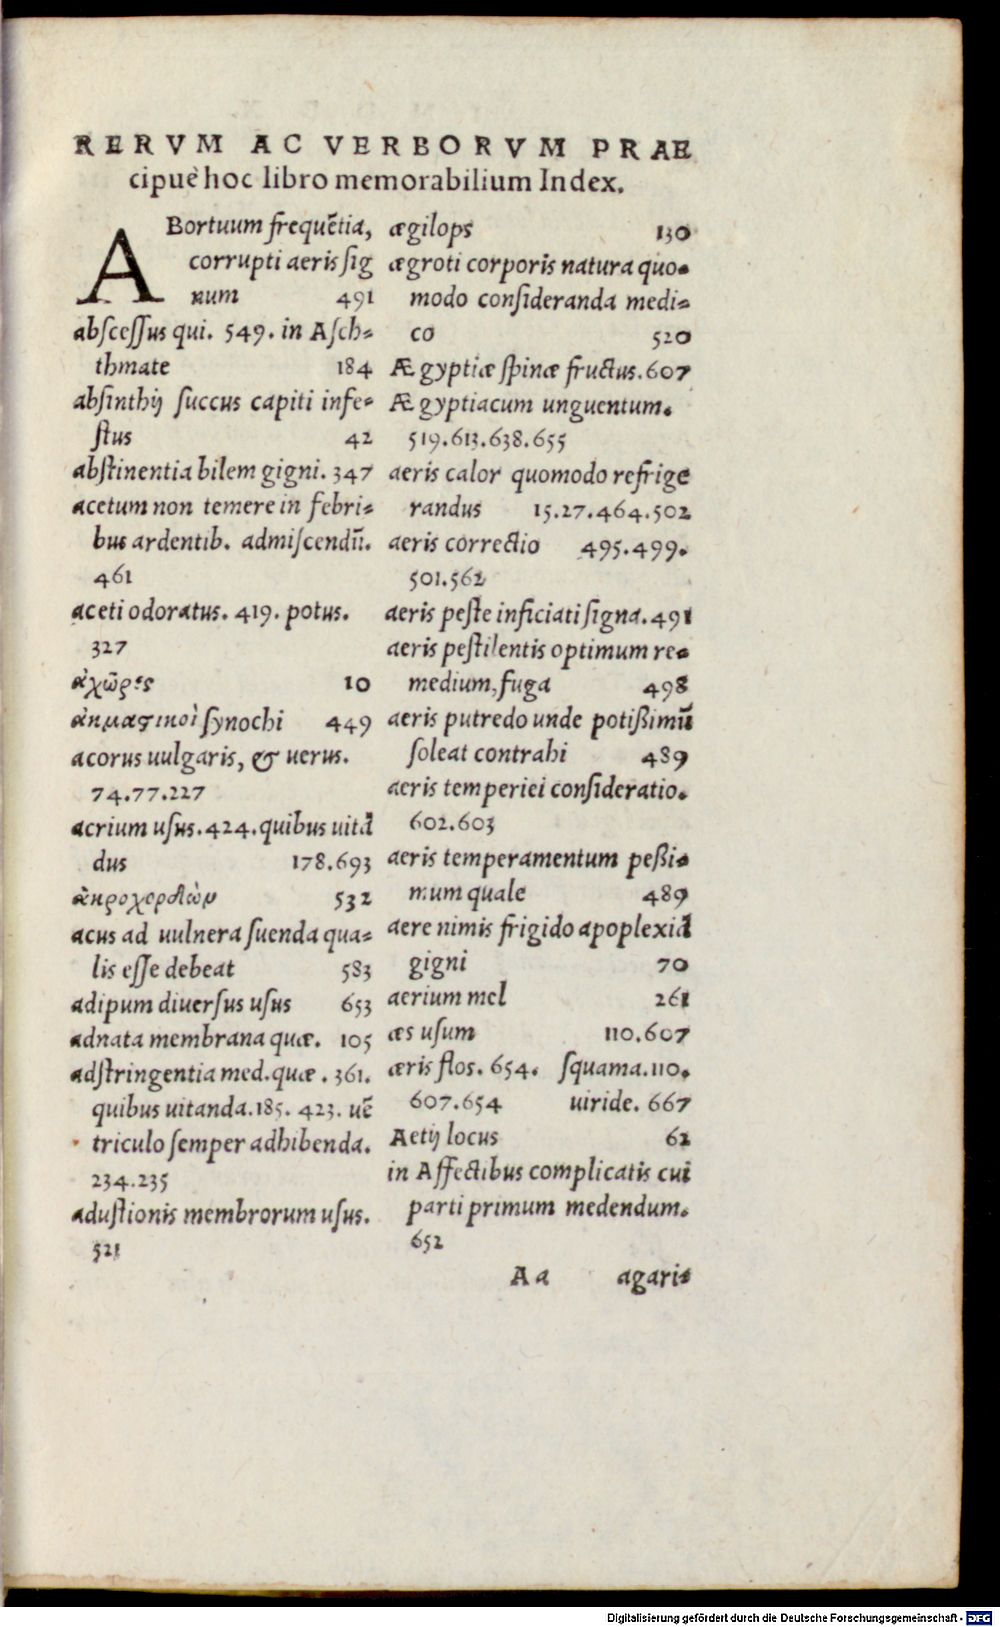 RERVM AC VERBORVM PRAE
cipuè hoc libro memorabilium Index.
ABortuum frequẽtia,
corrupti aeris sig
num 491
abscessus qui. 549. in Asch-
thmate 184
absinthij succus capiti infe-
stus 42
abstinentia bilem gigni. 347
acetum non temere in febri-
bus ardentib. admiscendũ.
461
aceti odoratus. 419. potus.
327
ἀχῶρες 10
ἀκμαστικοὶ synochi 449
acorus uulgaris, & uerus.
74.77.227
acrium usus. 424. quibus uitã
dus 178.693
ἀκροχορδὼν 532
acus ad uulnera suenda qua-
lis esse debeat 583
adipum diuersus usus 653
adnata membrana quæ. 105
adstringentia med. quæ. 361.
quibus uitanda. 185. 423. uẽ
triculo semper adhibenda.
234.235
adustionis membrorum usus.
521
ægilops 130
ægroti corporis natura quo-
modo consideranda medi-
co 520
Ægyptiæ spinæ fructus. 607
Ægyptiacum unguentum.
519.613.638.655
aeris calor quomodo refrige
randus 15.27.464.502
aeris correctio 495.499.
501.562
aeris peste inficiati signa. 491
aeris pestilentis optimum re-
medium, fuga 498
aeris putredo unde potißimũ
soleat contrahi 489
aeris temperiei consideratio.
602.603
aeris temperamentum peßi-
mum quale 489
aere nimis frigido apoplexiã
gigni 70
aerium mel 261
æs usum 110.607
æris flos. 654. squama. 110.
607.654 uiride. 667
Aetij locus 62
in Affectibus complicatis cui
parti primum medendum.
652
Aa agari-
Digitalisierung gefördert durch die Deutsche Forschungsgemeinschaft - DFG